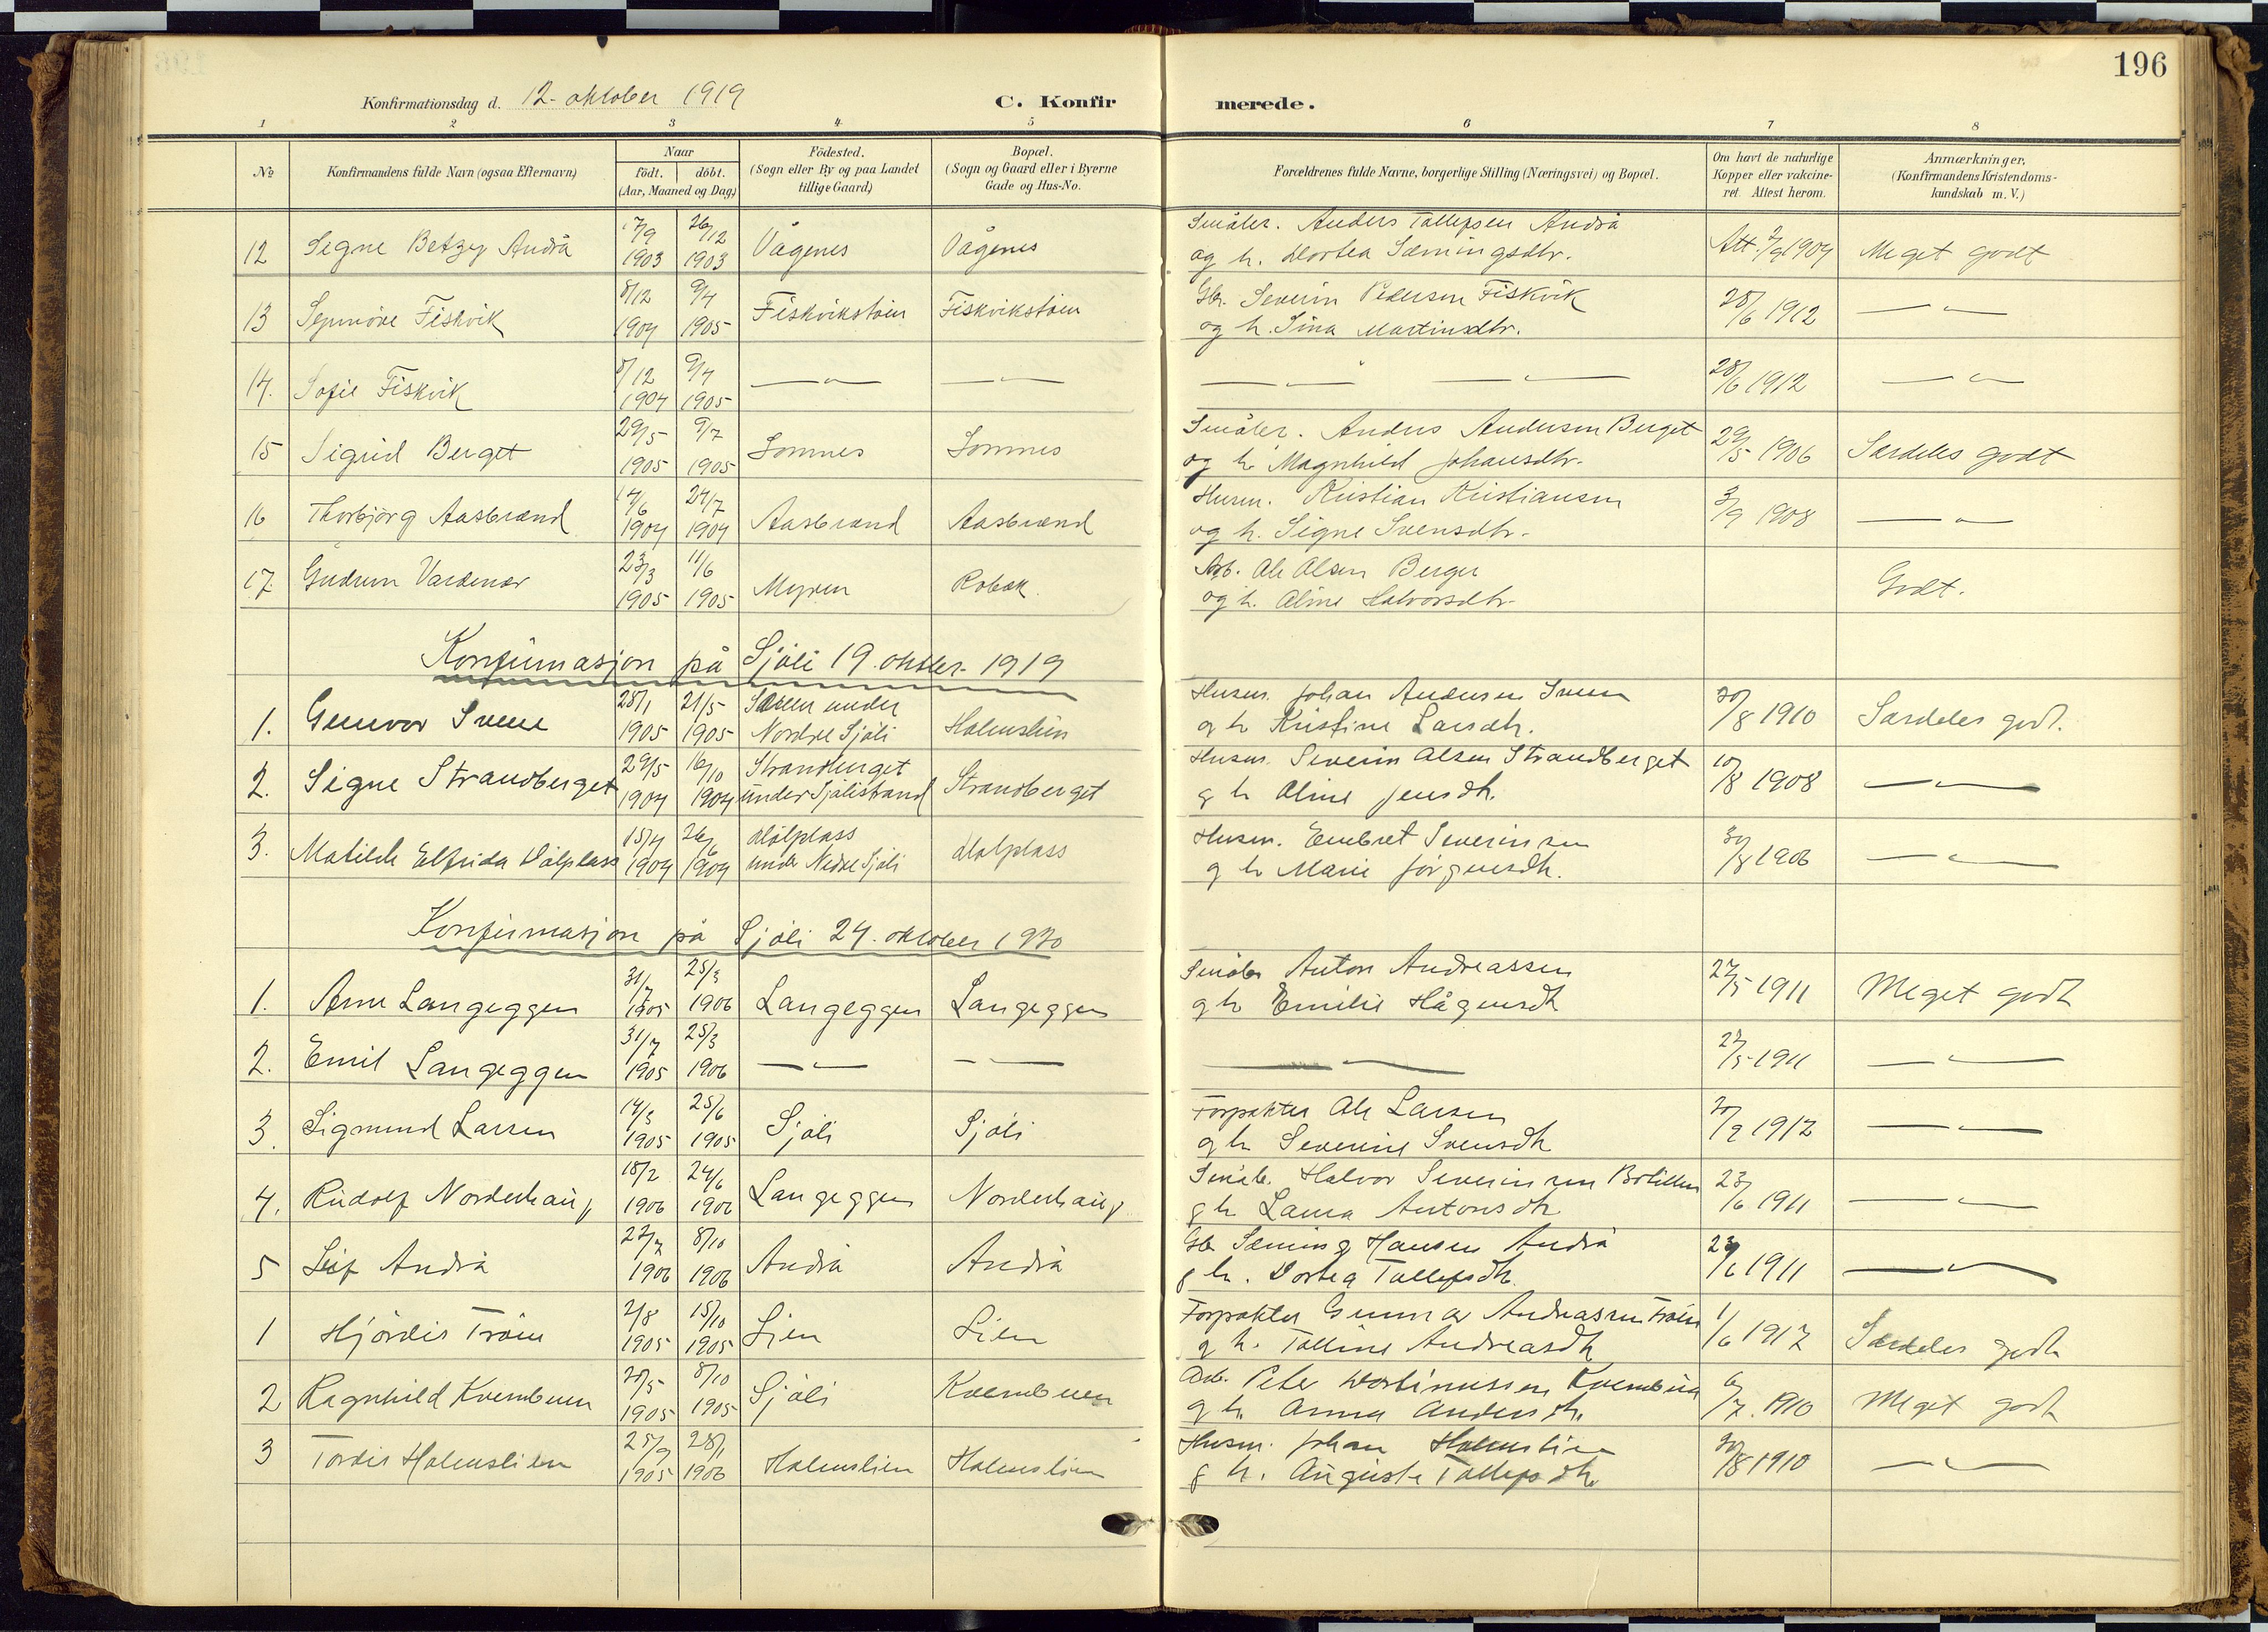 196
Konfirmationsdag d. 12. oktober 1919 C. Konfir merede.
1 2 3 4 5 6 7 8
No
Konfirmandens fulde Navn (ogsaa Efternavn)
Naar
födt. döbt.
(Aar, Maaned og Dag)
Födested.
(Sogn eller By og paa Landet
tillige Gaard)
Bopæl.
(Sogn og Gaard eller i Byerne
Gade og Hus-No.
Forældrenes fulde Navne, borgerlige Stilling (Næringsvei) og Bopæl.
Om havt de naturlige
Kopper eller vakcine-
ret. Attest herom.
Anmærkninger,
(Konfirmandens Kristendoms-
kundskab m. V.)
12 Signe Betzy Andrå 17/9 1903 26/12 1903 Vågenes Vågenes Småbr. Anders Tollefsen Andrå
og h. Dortea Sæmingsdtr. Att. 2/9 1904 Meget godt
13 Synnöve Fiskvik 8/12 1904 9/4 1905 Fiskvikstöen Fiskvikstöen Gbr. Severin Pedersen Fiskvik
og h. Sina Martinsdtr. 28/6 1912 — " —
14. Sofie Fiskvik 8/12 1904 9/4 1905 — " — — " — — " — — " — 28/6 1912 — " —
15 Sigrid Berget 29/5 1905 9/7 1905 Lomnes Lomnes Småbr. Anders Andersen Berget
og h. Magnhild Johansdtr. 29/5 1906 Særdeles godt
16 Thorbjörg Aasbrænd 14/6 1904 24/7 1904 Aasbrænd Aasbrænd Husm. Kristian Kristiansen
og h. Signe Svensdtr. 3/9 1908 — " —
17. Gudrun Vardenær 23/3 1905 11/6 1905 Myren Robæk Arb. Ole Olsen Berger
og h. Oline Halvorsdtr. Godt.
Konfirmasjon på Sjöli 19. oktober 1919
1. Gunvor Sveen 28/1 1905 21/5 1905 Sveen under
Nordre Sjöli Holmslien Husm. Johan Andersen Sveen
og h Kristine Larsdtr. 30/8 1910 Særdeles godt.
2. Signe Strandberget 29/5 1904 16/10 1904 Strandberget
under Sjölistrand Strandberget Husm. Severin Olsen Strandberget
og h Oline Jensdtr. 10/8 1908 — " —
3. Matilde Elfrida Dölplass 15/4 1904 26/6 1904 Dölplass
under Nedre Sjöli Dölplass Husm. Embret Severinsen
og h Marie Jörgensdtr. 30/8 1906 — " —
Konfirmasjon på Sjöli 24. oktober 1920
1. Arne Langeggen 31/7 1905 25/3 1906 Langeggen Langeggen Småbr Anton Andreassen
og h Emilie Hågensdtr 27/5 1911 Meget godt
2. Emil Langeggen 31/7 1905 25/3 1906 — " — — " — — " — 27/5 1911 — " —
3. Sigmund Larsen 14/3 1905 25/6 1905 Sjöli Sjöli Forpakter Ole Larsen
og h Severine Svensdtr 20/9 1912 — " —
4. Rudolf Norderhaug 18/2 1906 24/6 1906 Langeggen Norderhaug Småbr. Halvor Severinsen
og h Laura Antonsdtr 23/6 1911 — " —
5 Leif Andrå 22/7 1906 8/10 1906 Andrå Andrå Gbr Sæming Hansen Andrå
og h. Dortea Tollefsdtr. 23/6 1911 — " —
1 Hjördis Tröen 2/8 1905 15/10 1905 Lien Lien Forpakter Gunnar Andreassen Tröen
og h. Tolline Andreasdtr 1/6 1917 Særdeles godt
2 Ragnhild Kvernbuen 20/5 1905 8/10 1905 Sjöli Kvernbuen Arb. Peter Martinussen Kvernbuen
og h. Anna Andersdtr. 6/7 1910 Meget godt
3 Tordis Holmslien 25/9 1905 28/1 1906 Holmslien Holmslien Husm. Johan Holmslien
og h. Auguste Tollefsdtr 30/8 1910 — " —